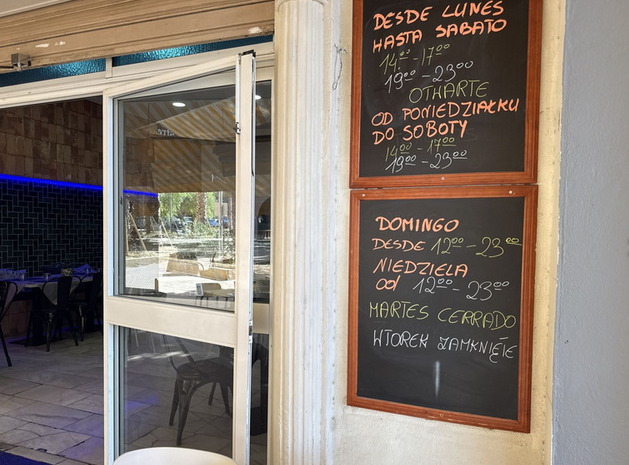 DESDE LUNES
HASTA SABATO
14:00-17:00
19:00-23:00
OTHARTE
OD PONIEDZIAŁKU
DO SOBOTY
14:00-17:00
19:00-23:00
DOMINGO
DESDE 12:00-23:00
NIEDZIELA
od 12:00-23:00
MARTES CERRADO
WTOREK ZAMKNIĘTE